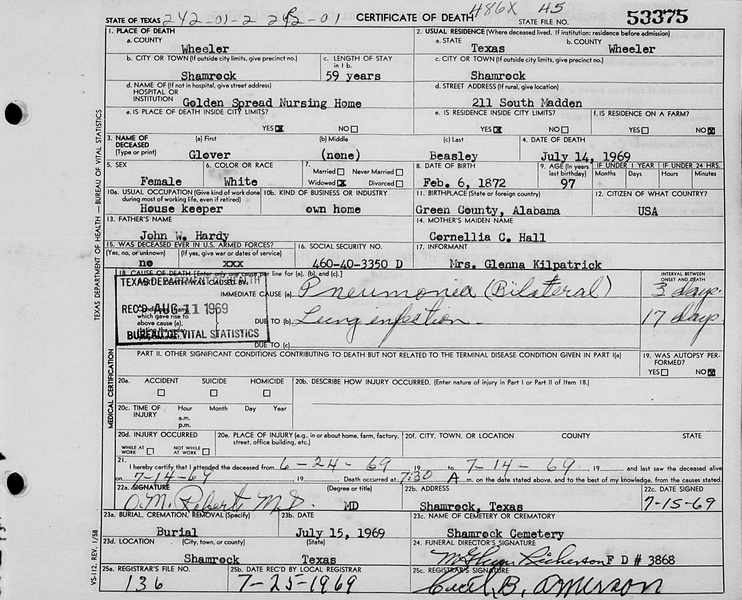 STATE OF TEXAS 242-01-2 242-01 CERTIFICATE OF DEATH 486X 45 STATE FILE NO. 53375
1. PLACE OF DEATH 2. USUAL RESIDENCE (Where deceased lived. If institution: residence before admission)
a. COUNTY Wheeler a. STATE Texas b. COUNTY Wheeler
b. CITY OR TOWN (If outside city limits, give precinct no.) c. LENGTH OF STAY in 1 b. c. CITY OR TOWN (If outside city limits, give precinct no.)
Shamrock 59 years Shamrock
d. NAME OF (If not in hospital, give street address) HOSPITAL OR INSTITUTION d. STREET ADDRESS (If rural, give location)
Golden Spread Nursing Home 211 South Madden
e. IS PLACE OF DEATH INSIDE CITY LIMITS? e. IS RESIDENCE INSIDE CITY LIMITS? f. IS RESIDENCE ON A FARM?
YES NO YES NO YES NO
3. NAME OF DECEASED (Type or print) (a) First (b) Middle (c) Last 4. DATE OF DEATH
Glover (none) Beasley July 14, 1969
5. SEX 6. COLOR OR RACE 7. Married Never Married Widowed Divorced 8. DATE OF BIRTH 9. AGE (In years last birthday) IF UNDER 1 YEAR Months Days IF UNDER 24 HRS. Hours Minutes
Female White Feb. 6, 1872 97
10a. USUAL OCCUPATION (Give kind of work done during most of working life, even if retired) 10b. KIND OF BUSINESS OR INDUSTRY 11. BIRTHPLACE (State or foreign country) 12. CITIZEN OF WHAT COUNTRY?
House keeper own home Green County, Alabama USA
13. FATHER'S NAME 14. MOTHER'S MAIDEN NAME
John W. Hardy Cornellia C. Hall
15. WAS DECEASED EVER IN U.S. ARMED FORCES? 16. SOCIAL SECURITY NO. 17. INFORMANT
(Yes, no, or unknown) (If yes, give war or dates of service)
no xxx 460-40-3350 D Mrs. Glenna Kilpatrick
18. CAUSE OF DEATH (Enter only one cause per line for (a), (b), and (c).) INTERVAL BETWEEN ONSET AND DEATH
TEXAS DEPARTMENT OF HEALTH
IMMEDIATE CAUSE (a) Pneumonia (Bilateral) 3 days
REC'D AUG 11 1969
which gave rise to above cause (a),
DUE TO (b) Lung infection 17 days
BUREAU OF VITAL STATISTICS
DUE TO (c)
PART II. OTHER SIGNIFICANT CONDITIONS CONTRIBUTING TO DEATH BUT NOT RELATED TO THE TERMINAL DISEASE CONDITION GIVEN IN PART I(a) 19. WAS AUTOPSY PERFORMED?
YES NO
20a. ACCIDENT SUICIDE HOMICIDE 20b. DESCRIBE HOW INJURY OCCURRED. (Enter nature of injury in Part I or Part II of Item 18.)
20c. TIME OF INJURY Hour a.m. p.m. Month Day Year
20d. INJURY OCCURRED WHILE AT WORK NOT WHILE AT WORK 20e. PLACE OF INJURY (e.g., in or about home, farm, factory, street, office building, etc.) 20f. CITY, TOWN, OR LOCATION COUNTY STATE
21. I hereby certify that I attended the deceased from 6-24-69 19 to 7-14-69 19 and last saw the deceased alive
on 7-14-69 19 Death occurred at 7:30 A m. on the date stated above, and to the best of my knowledge, from the causes stated.
22a. SIGNATURE (Degree or title) 22b. ADDRESS 22c. DATE SIGNED
MD Shamrock, Texas 7-15-69
23a. BURIAL, CREMATION, REMOVAL (Specify) 23b. DATE 23c. NAME OF CEMETERY OR CREMATORY
Burial July 15, 1969 Shamrock Cemetery
23d. LOCATION (City, town, or county) (State) 24. FUNERAL DIRECTOR'S SIGNATURE
Shamrock Texas Richerson F D # 3868
25a. REGISTRAR'S FILE NO. 25b. DATE REC'D BY LOCAL REGISTRAR 25c. REGISTRAR'S SIGNATURE
136 7-25-1969 B. Amerson
TEXAS DEPARTMENT OF HEALTH — BUREAU OF VITAL STATISTICS
MEDICAL CERTIFICATION
VS-112, REV. 1/58